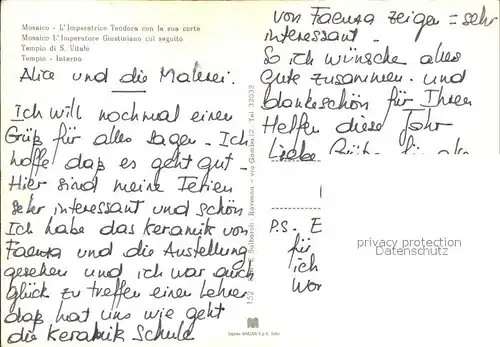 Mosaico - L'Imperatrice Teodora con la sua corte
Mosaico L'Imperatore Giustiniano col seguito
Tempio di S. Vitale
Tempio - Interno
Alice und die Malerei.
Ich will nochmal einen
Grüß für alles sagen - Ich
hoffe daß es geht gut -
Hier sind meine Ferien
sehr interessant und schön
Ich habe das Keramik von
Faenza und die Austellung
gesehen und ich war auch
glück zu treffen einen Lehrer
daß hat uns wie geht
die Keramik Schule
von Faenza zeigen = sehr
interessant -
So ich wünsche alles
Gute zusammen. und
dankeschön für Ihren
Helfen diese Jahr
Liebe
P.S. E
für
ich
Wor
152
Ravenna - via
Tel 32032
privacy protection
Datenschutz